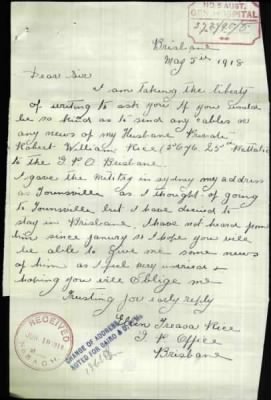 NO 5 AUST.
GEN. HOSPITAL
Brisbane
May 5th 1918
Dear Sir
I am taking the liberty
of writing to ask you if you would
be so kind as to send any cables or
any news of my Husband Private
Robert William Rice (5676. 25th Battalion
to the G P O Brisbane.
I gave the Military in sydney my address
as Townsville as I thought of going
to Townsville but I have decided to
stay in Brisbane. I have not heard from
him since january so I hope you will
be able to give me some news
of him as I feel very worried &
hoping you will Oblige me
Trusting for early reply
Ellen Treasa Rice
G P Office
Brisbane
RECEIVED
CHANGE OF ADDRESS
NOTED FOR